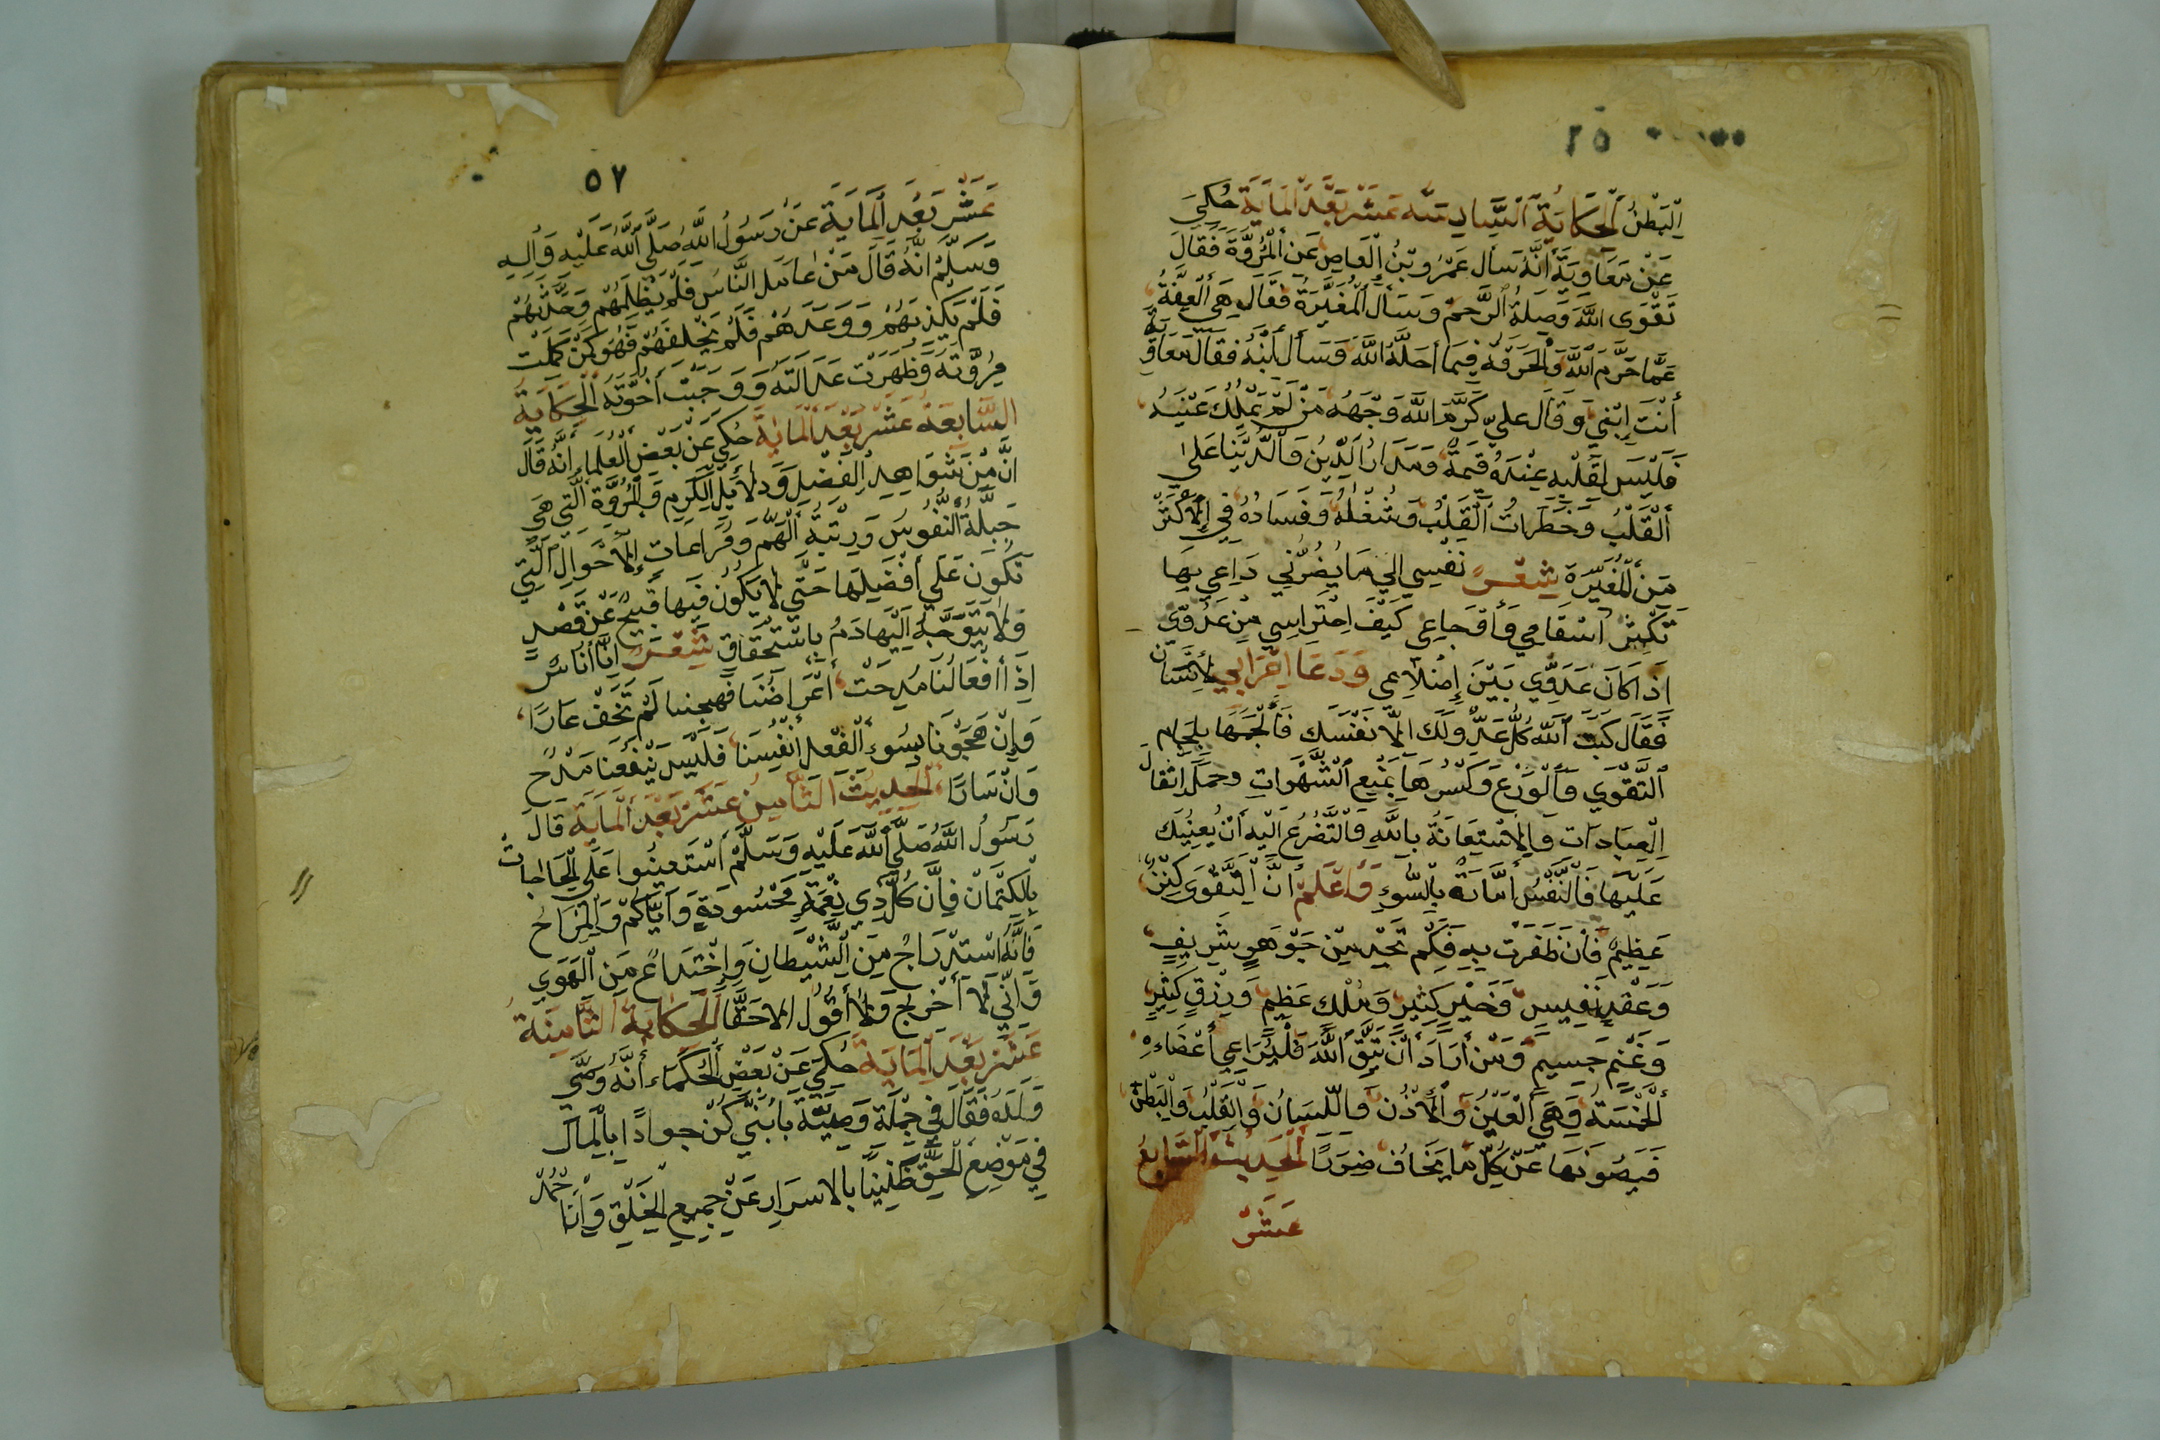 ٢٥
اِلْبَطْنُ الْحِكَايَةُ السَّادِسَه عَشْر بَعْدَ الْمَايَة حُكِيَ
عَنْ مَعَاوِيَة أَنَّهُ سَأَل عَمْرُو بْنُ اِلْعَاصِ عَن الْمُرُوَّةَ فَقَالَ
تَقْوَى اللَّهَ وَصِلَةُ الرَّحِمْ وَسَأَلَ الْمُغِيَّرَةُ فَقَال هِيَ الْعِفَّةُ
عَمَّا حَرَّمَ اللَّهَ وَالْحَرَفَة فِيمَا أَحَلَّهُ اللَّهَ وَسَأَل ابْنَهُ فَقَالَ مَعَاوِيَة
أَنْتَ اِبْنِي وَقَال علِيّ كَرَّمَ اللَّهَ وَجْهَهُ مَنْ لَمْ يَمْلِكْ عَيْنَيْهُ
فَلَيْسَ لِقَلْبِهِ عِنْدَهُ قِيمَةٌ وَمَدَارُ الدِّيْنُ وَالدُّنْيَا عَلىٰ
الْقَلْبُ وَخَطَرَاتُ الْقَلْبُ وَشُغْلُهُ وَفَسَادُهُ فِي اِلْأَكْثَرْ
مِنَ الْمُغَيَّرَة شِعْرٌ نَفْسِي اِلي مَا يُضُرُّنِي دَاعِي بِهَا
تَكْثِرُ اسْقَامِي وَأَوْجَاعِي كَيْفَ اِحْتِرَاسِي مِنْ عَدُوِّى
اِذَا كَانَ عَدُوِّي بَيْنَ اِضْلَاعِي وَدَعَا اِعْرَابِي لِاِنْسَان
فَقَال كَبَتَ اللَّه كُلُّ عَدُوٍّ لَكَ اِلَّا نَفْسَكَ فَأَلْجِمْهَا بِلِجَامِ
التَّقْوَي وَالْوَرَعْ وَكَسْرُهَا بِمَنْعِ الشَّهَوَاتِ وحَمْلُ اِثْقَالَ
اِلْعِبَادَات وَاِلْاِسْتِعَانَةُ باللَّهِ وَالْتَّضَرُّعُ اِلَيْه أَنْ يُعِيْنُكَ
عَلَيْهَا فَالْنَّفْسُ أمَّارَةٌ بِالسُّوءِ وَأعْلَمْ أَنَّ الْتَّقْوَى كَنْزٌ
عَظِيْمٌ فَأَن ظَفَرْتَ بِهِ فَكَمْ تَجِد مِنْ جَوْهَرٍ شَرِيفٍ
وَعِقْدٍ نَفِيسٍ وَخَيْرٍ كَثِيْرٍ وَمُلْكٍ عَظِيْمٍ وَرِزْقٍ كَثِيْرٍ
وَغُنْمٍ جَسِيمٍ وَمَنْ أَرَادَ أَنْ يَتَّقِ اللَّهَ فَلْيُرَاعِي أَعْضَاءَهُ
الْخَمْسَةُ وَهِيَ الْعَيْنُ وَالْأُذُنْ وَاللِّسَانُ وَالْقَلْبُ وَالْبَطْنُ
فَيَصُونُهَا عَنْ كُلِّ مَا يَخَافُ ضِرَرًا الْحَدِيْثُ السَّابِعُ
عَشَرْ
٥٧
عَشْر بَعْد الْمَايَة عَنْ رَسُولُ اللَّهِ صَلَّي اللَّهُ عَلَيْهِ وَآلِهِ
وَسَلَّمْ انَّهُ قَالَ مَنْ عَامَلَ النَّاسُ فَلَمْ يَظْلِمْهُمْ وَحَدَّثَهُمْ
فَلَمْ يَكْذِبَهُمْ وَوَعَدَهُمْ فَلَمْ يُخْلِفَهُمْ فَهُوَ مِمَّنْ كَمَلَتْ
مِرُوَّتَهُ وَظَهَرَتْ عَدَالَتَهُ وَوَجَبَتْ اُخُوَّتَهُ الْحِكَايَةُ
السَّابِعَةُ عَشَرْ بَعْدَ الْمَايَة حُكِيَ عَنْ بَعْضِ الْعُلَمَاءِ أَنَّهُ قَالَ
انَّ مِنْ شَوَاهِدِ اِلْفَضْلِ وَدِلَايِل الْكَرِمِ وَالْمُرُوَّة الَّتِي هِيَ
جَبِلَّةُ النُّفُوسُ وَرِتْبَةُ الْهِمَّمِ وَمُرَاعَات اِلْأَحْوَال الَّتِي
تَكُونَ عَلَي أَفْضَلِهَا حَتَّي لَا يَكُون فِيهَا قَبِيحٌ عَنْ قَصْدٍ
وَلَا يَتَوَجَّهْ اِلَيْهَا ذَمٌ بِاسْتَحْقَاقٍ شِعْرٌ اِنَّا أُنَاسٌ
اِذَا أَفْعَالُنَا مُدِحَتْ أَعْرَاضُنَا فَهِجِنَا لَمْ تَخَفْ عَارًا
وَاِنْ هَجَوْنَا بِسُوءِ الْفِعْلِ أَنْفُسَنَا فَلَيْسَ يَنْفَعُنَا مَدْحٌ
وَاِنْ سَارَا الْحَدِيْثُ الثَّامِنُ عَشَرَ بَعْدَ الْمَايَة قَالَ
رَسُولُ اللَّهُ صَلَّي اللَّهَ عَلَيْهِ وَسَلَّمْ أسْتَعِينُوا عَلَي الْحَاجَاتْ
بِالْكِتْمَانْ فَاِنَّ كُلُّ ذِي نِعْمَةٍ مَحْسُودَةٍ وَاِيَّاكُمْ وَالْمِزَاحُ
فَاِنَّهُ اِسْتِدْرَاجٌ مِنَ الشَّيْطَانِ وَاِخْتِدَاعٌ مِنَ الْهَوَي
وَاِنِّي لَا أَمْزِحْ وَلَا أَقُولُ اِلَّا حَقًّا الْحِكَايَةُ الثَّامِنَةُ
عَشَرْ بَعْدَ الْمَايَة حُكِيَ عَنْ بَعْضِ الْحُكَمَاءِ أَنَّهُ وَصَّي
وَلَدَهُ فَقَال فِي جُمْلَة وَصِيَّتَه يَابُنَيَّ كُنْ جوادًا بِالْمَالِ
فِي مَوْضِع الْحَقّ ظَنِينًا بالاسرَارِ عَنْ جميع الْخَلْقِ وَاِنَّ أَحْمَدْ